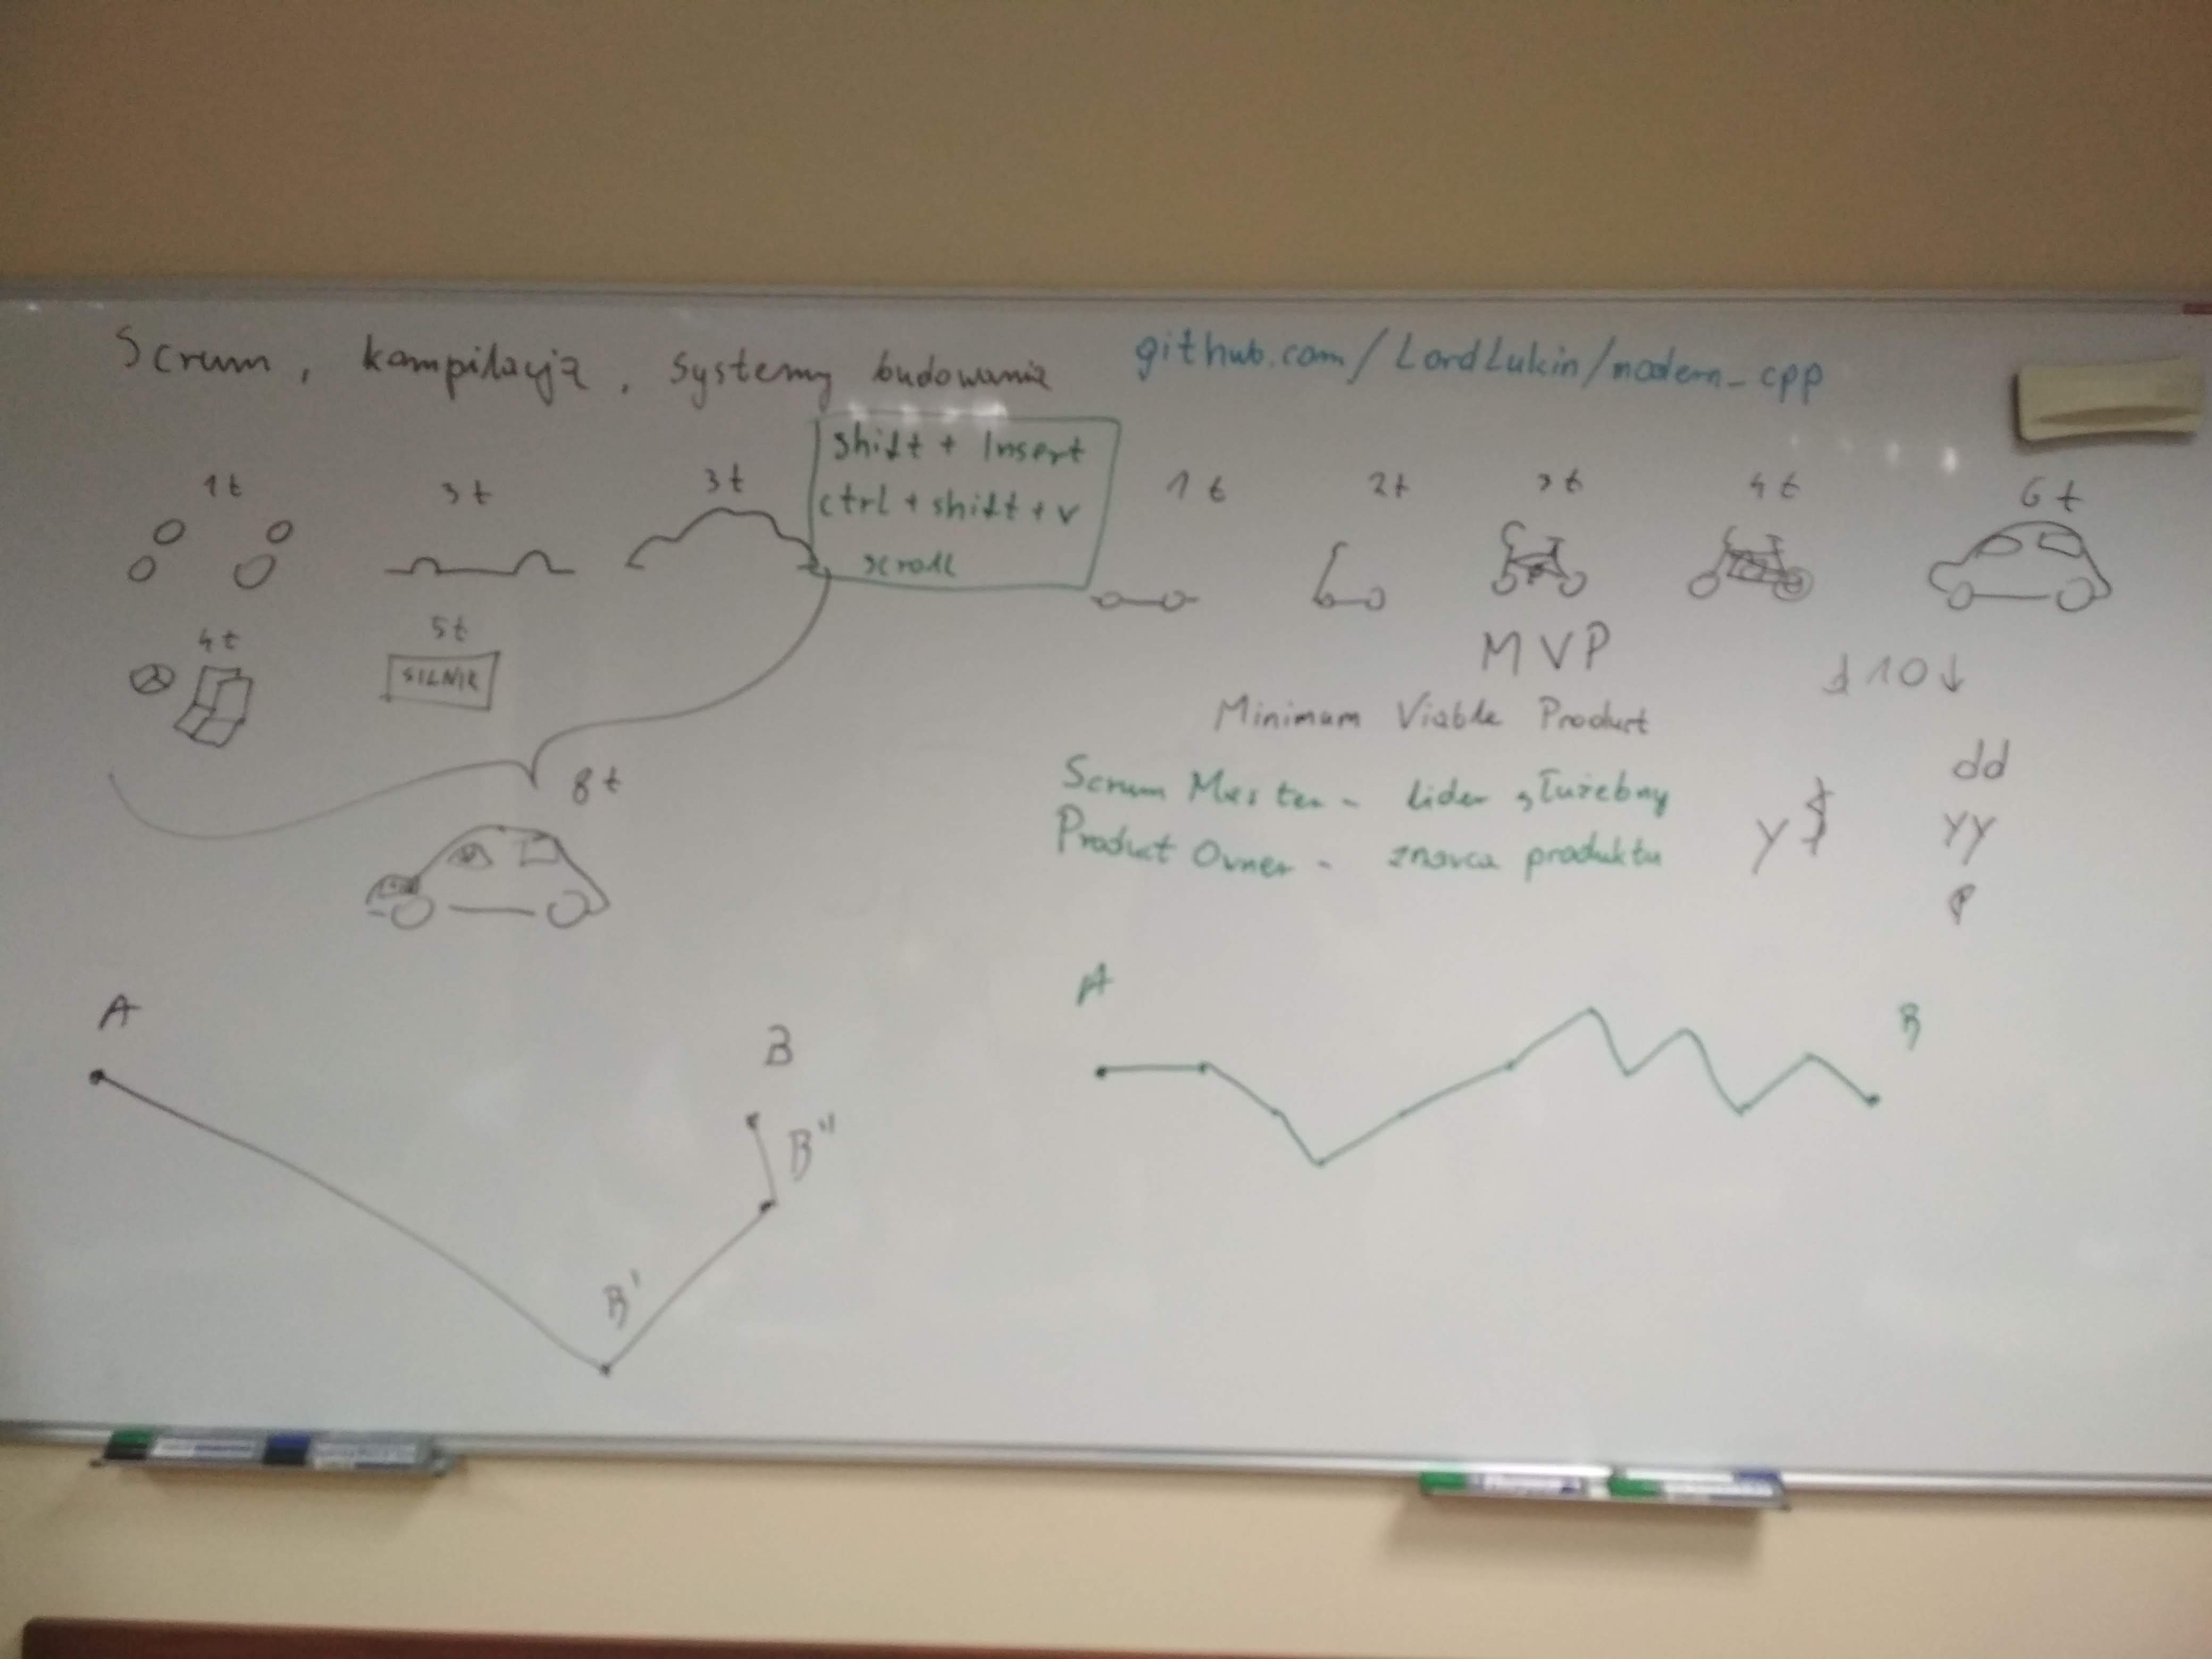 Scrum, kompilacja, systemy budowania
github.com/LordLukin/modern_cpp
shift + Insert
ctrl + shift + v
scroll
1t 3t 3t
4t 5t
SILNIK
8t
1t 2t 3t 4t 6t
MVP
Minimum Viable Product
d10↓
Scrum Master - lider służebny
Product Owner - znawca produktu
y$
dd
yy
p
A
B
B"
B'
A
B